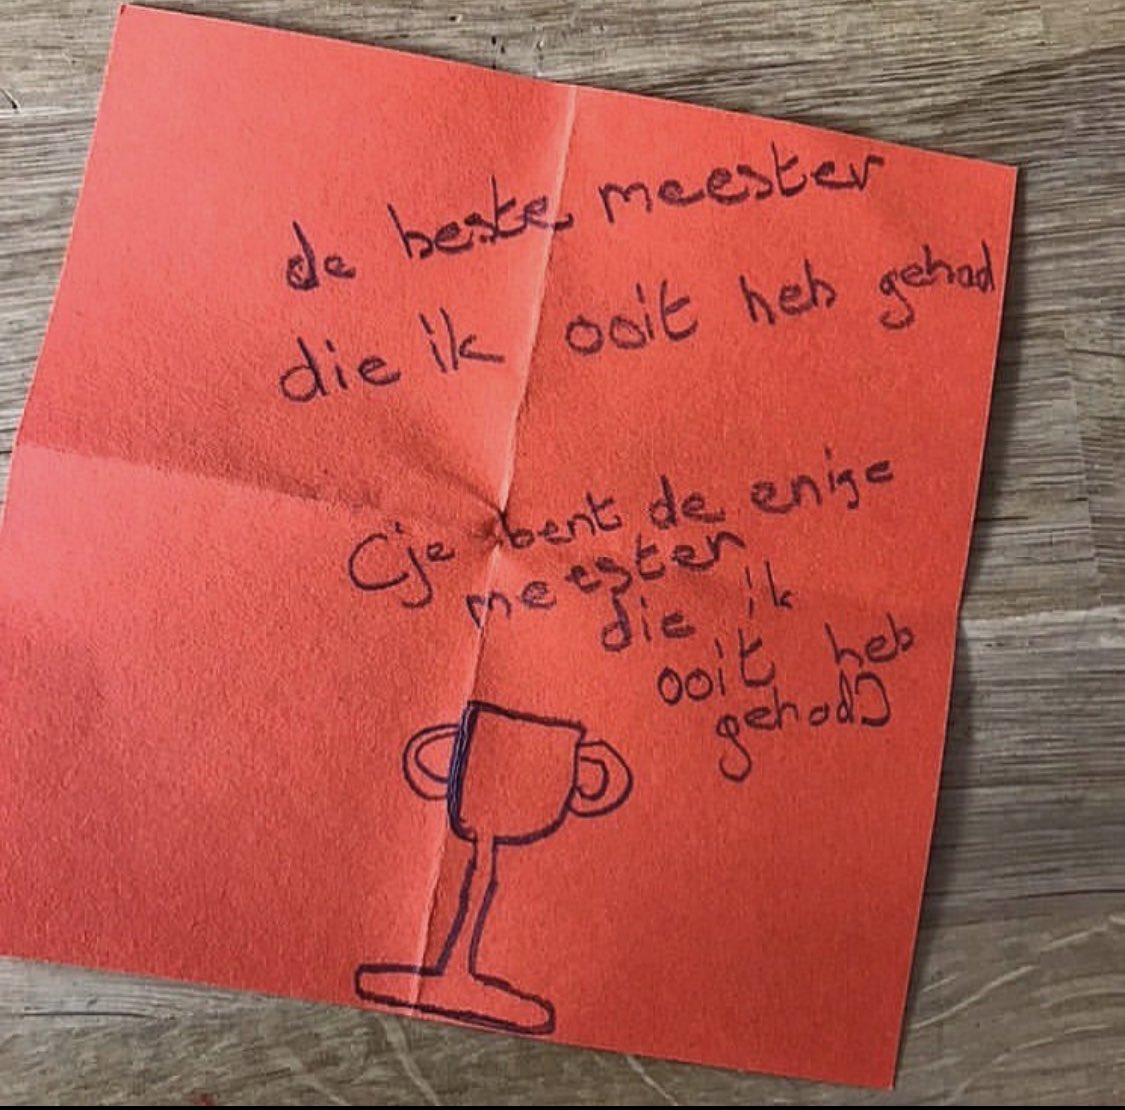 de beste meester
die ik ooit heb gehad
(je bent de enige
meester
die ik
ooit heb
gehad)